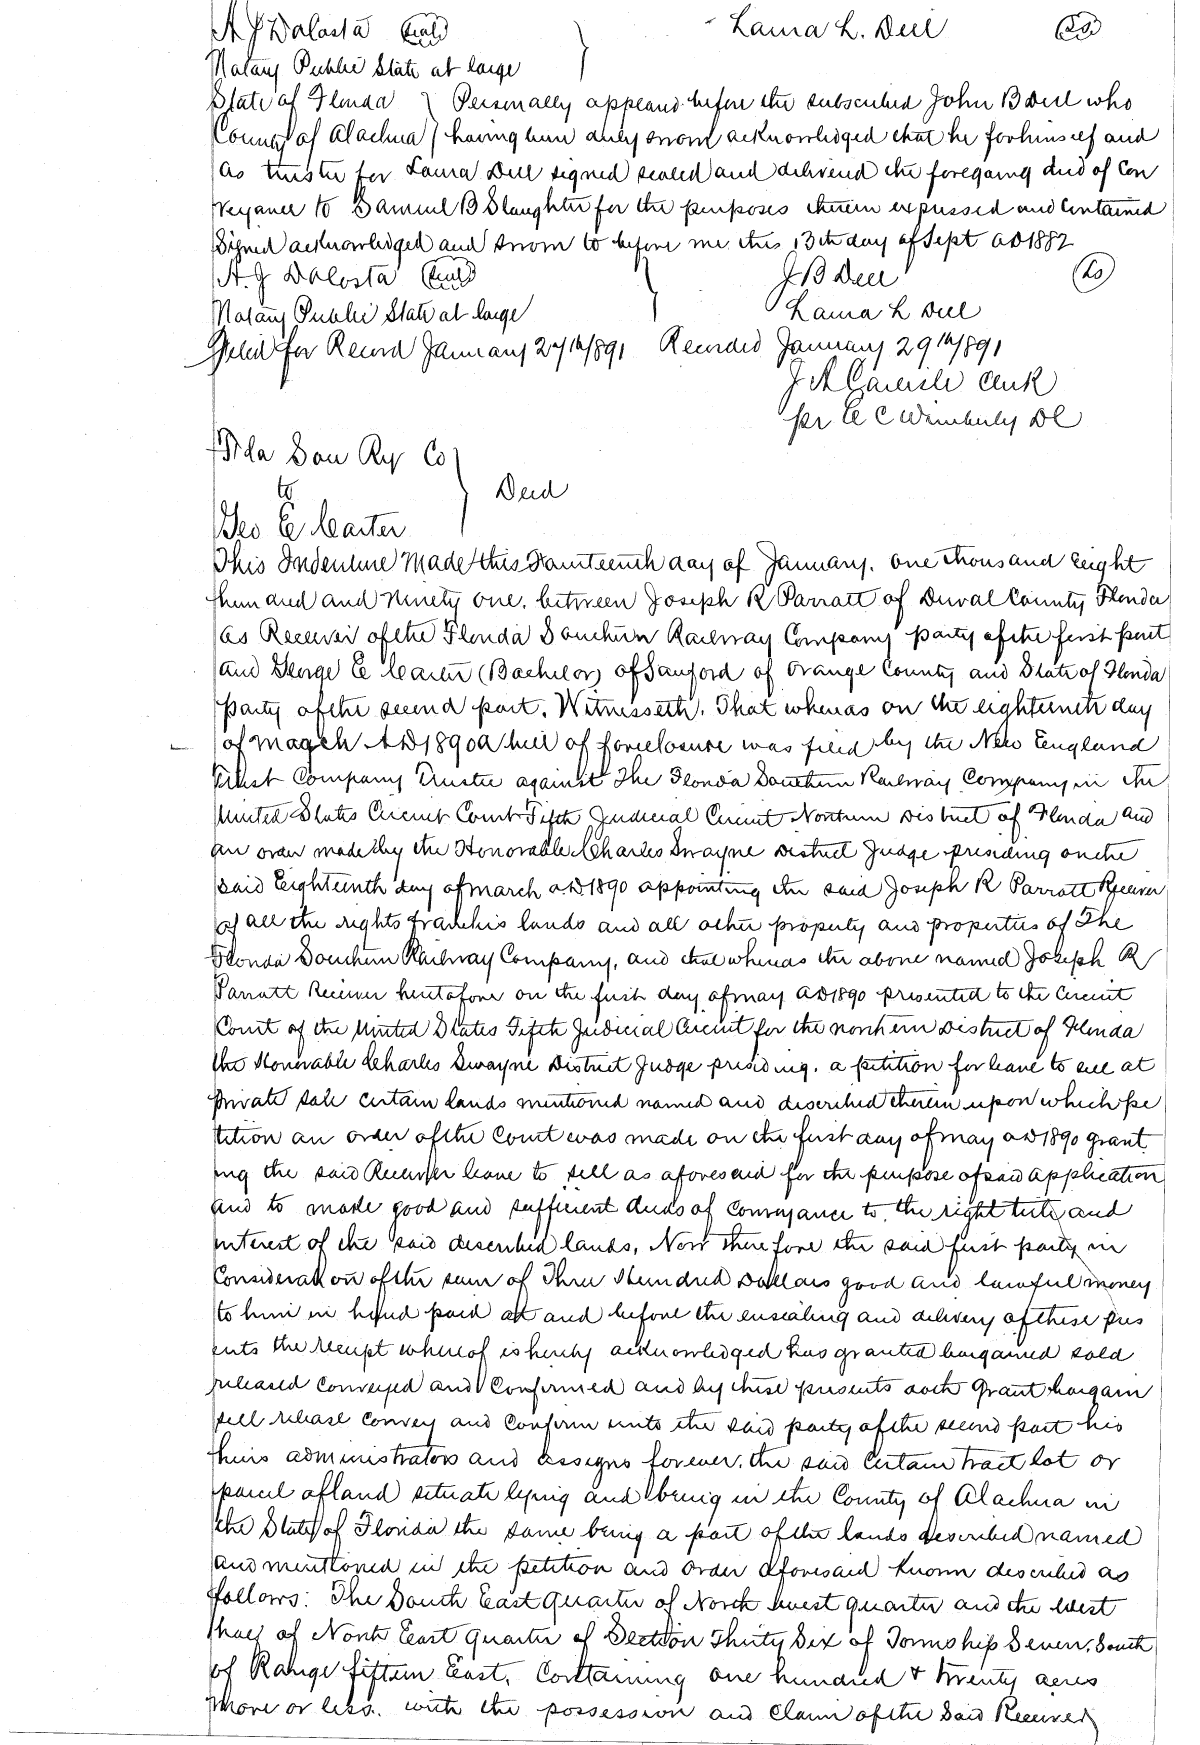 A J DaCosta (seal) } Laura L. Dell (LS)
Notary Public State at large
State of Florida } Personally appeard before the subscribed John B Dell who
County of Alachua } having been duly sworn acknowledged that he for himself and
as trustee for Laura Dell signed sealed and delivered the foregoing deed of Con
veyance to Samuel B Slaughter for the purposes therein expressed and contained
Signed acknowledged and sworn to before me this 13th day of Sept AD 1882
A. J DaCosta (seal) } J B Dell (LS)
Notary Public State at large Laura L Dell
Filed for Record January 27th 1891 Recorded January 29th 1891
J A Carlisle Clerk
pr E C Wimberly DC
Fla Sou Ry Co }
to } Deed
Geo E Carter
This Indenture Made this Fourteenth day of January. one thousand Eight
hundred and Ninety one. between Joseph R Parrott of Duval County Florida
as Receiver of the Florida Southern Railway Company party of the first part
and George E Carter (Bachelor) of Sanford of Orange County and State of Florida
party of the second part. Witnesseth. That whereas on the eighteenth day
of March AD 1890 a bill of foreclosure was filed by the New England
Trust Company Trustee against The Florida Southern Railway Company in the
United States Circuit Court Fifth Judicial Circuit Northern District of Florida and
an order made by the Honorable Charles Swayne District Judge presiding on the
said Eighteenth day of March AD 1890 appointing the said Joseph R Parrott Receiver
of all the rights franchis lands and all other property and properties of The
Florida Southern Railway Company, and that whereas the above named Joseph R
Parrott Receiver heretofore on the first day of May AD 1890 presented to the Circuit
Court of the United States Fifth Judicial Circuit for the northern District of Florida
the Honorable Charles Swayne District Judge presiding. a petition for leave to sell at
private sale certain lands mentioned named and described therein upon which pe
tition an order of the Court was made on the first day of May AD 1890 grant
ing the said Receiver leave to sell as aforesaid for the purpose of said application
and to make good and sufficient deeds of conveyance to the right title and
interest of the said described lands, Now therefore the said first party in
Consideration of the sum of Three Hundred Dollars good and lawful money
to him in hand paid at and before the ensealing and delivery of these pres
ents the receipt whereof is hereby acknowledged has granted bargained sold
released conveyed and Confirmed and by these presents doth Grant bargain
sell release Convey and Confirm unto the said party of the second part his
heirs administrators and assigns forever. the said Certain tract lot or
parcel of land situate lying and being in the County of Alachua in
the State of Florida the same being a part of the lands described named
and mentioned in the petition and order aforesaid known described as
follows: The South East Quarter of North west quarter and the West
half of North East Quarter of Section Thirty Six of Township Seven. South
of Range fifteen East. Containing one hundred & twenty acres
more or less. with the possession and Claim of the Said Receiver